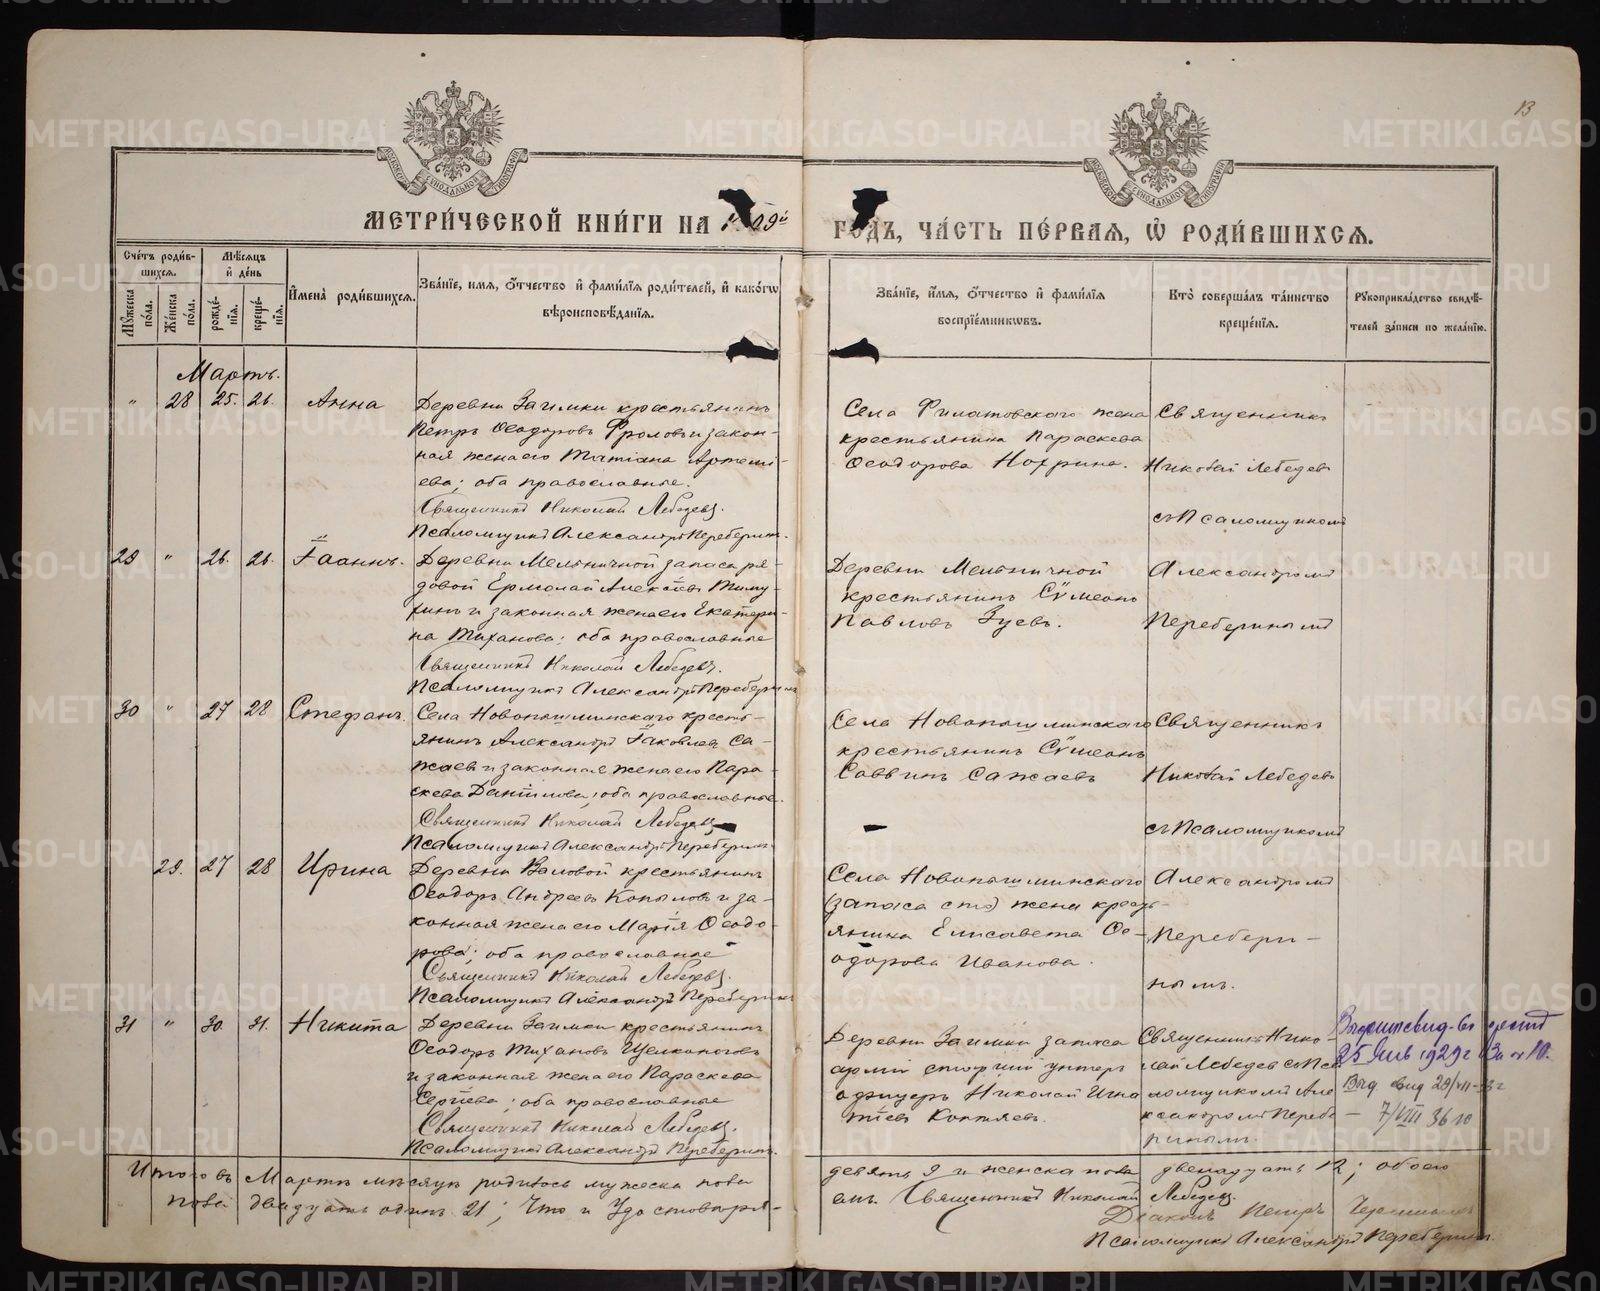 13
МЕТРИ́ЧЕСКОЙ КНИ́ГИ НА 1909й ГОДЪ, ЧА́СТЬ ПЕ́РВАЯ, Ѡ РОДИ́ВШИХСЯ.
Сче́тъ роди́в-
шихся.
Мѣ́сяцъ
и҆ де́нь
Му́жеска по́ла.
Же́нска по́ла.
рожде́-нїя.
креще́-нїя.
И҆мена̀ роди́вшихся.
Зва́нїе, и҆мя, ѻ҆́тчество и҆ фами́лїя роди́телей, и҆ како́гѡ
вѣроисповѣ́данїя.
Зва́нїе, и҆́мя, ѻ҆́тчество и҆ фами́лїя
воспрїе́мникѡвъ.
Кто̀ соверша́лъ та́инство
креще́нїя.
Рꙋкоприкла́дство свидѣ́-
телей за́писи по жела́нїю.
Мартъ.
" 28 25. 26. Анна
Деревни Заимки крестьянинъ
Петръ Ѳеодоровъ Фроловъ и закон-
ная жена его Татіана Артемі-
ева; оба православные.
Священникъ Николай Лебедевъ.
Псаломщикъ Александръ Переберинъ.
Села Филатовскаго жена
крестьянина Параскева
Ѳеодорова Нохрина.
Священникъ
Николай Лебедевъ
съ Псаломщикомъ
29 " 26. 26. Іоаннъ.
Деревни Мельничной запаса ря-
довой Ермолай Алексѣевъ
и законная жена его Екатери-
на Тиханова; оба православные
Священникъ Николай Лебедевъ.
Псаломщикъ Александръ Переберинъ
Деревни Мельничной
крестьянинъ Сѵмеонъ
Павловъ Зуевъ.
Александромъ
Переберинымъ
30 " 27 28 Стефанъ.
Села Новопышминскаго кресть-
янинъ Александръ Іаковлевъ Са-
жаевъ и законная жена его Пара-
скева Даніилова; оба православные.
Священникъ Николай Лебедевъ
Псаломщикъ Александръ Переберинъ
Села Новопышминскаго
крестьянинъ Сѵмеонъ
Саввинъ Сажаевъ
Священникъ
Николай Лебедевъ
съ Псаломщикомъ
29. 27 28 Ирина
Деревни Валовой крестьянинъ
Ѳеодоръ Андреевъ Копыловъ и за-
конная жена его Марія Ѳеодо-
рова; оба православные
Священникъ Николай Лебедевъ.
Псаломщикъ Александръ Переберинъ
Села Новопышминскаго
жена кресть-
янина Елисавета Ѳе-
одорова Иванова.
Александромъ
Перебери-
нымъ.
31 " 30. 31. Никита
Деревни Заимки крестьянинъ
Ѳеодоръ Тихановъ Щелконоговъ
и законная жена его Параскева
Сергіева; оба православные
Священникъ Николай Лебедевъ.
Псаломщикъ Александръ Переберинъ.
Деревни Заимки запаса
арміи старшій унтеръ
офицеръ Николай Игна
тіевъ Коптяевъ.
Священникъ Нико-
лай Лебедевъ съ Пса
ломщикомъ Але
ксандромъ Перебе
ринымъ.
25 Янв 1929 г За № 10.
Выд свид 29/VII-33 г
— 7/VIII 36 го
Итого въ Мартѣ мѣсяцѣ родилось мужеска пола девять 9 и женска пола двенадцать 12; обоего
пола двадцать одинъ 21; Что и удостовѣря-емъ. Священникъ Николай Лебедевъ.
Діаконъ Петръ
Псаломщикъ Александръ Переберинъ.
METRIKI.GASO-URAL.RU